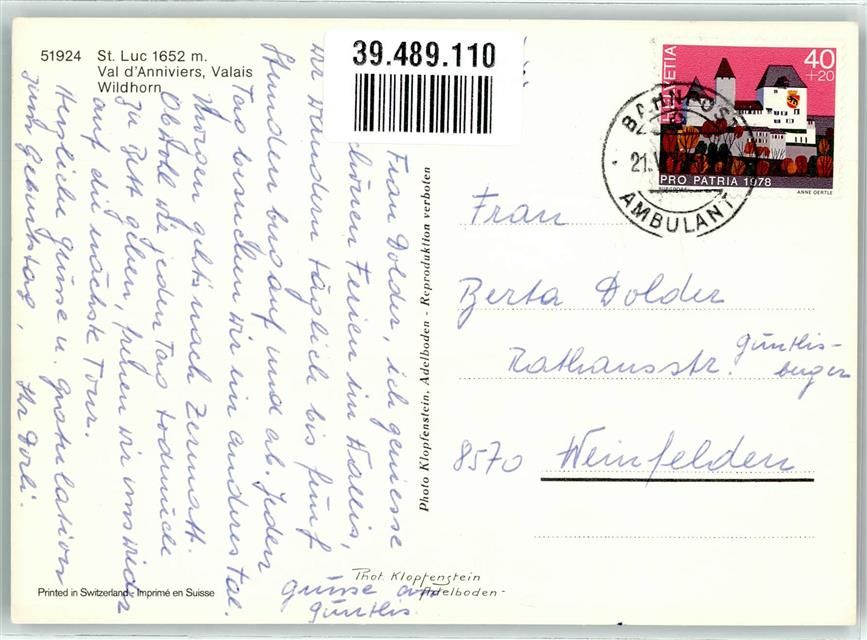 51924 St. Luc 1652 m.
Val d'Anniviers, Valais
Wildhorn
39.489.110
HELVETIA
40
+20
PRO PATRIA 1978
ANNE OERTLE
BAHNPOST
21.
AMBULANT
Frau Dolder, ich geniesse
schönen Ferien im Wallis,
wir wandern täglich bis fünf
Stunden bergauf und ab. Jeden
Tag besuchen wir ein anderes Tal.
Morgen geht's nach Zermatt.
Obwohl wir jeden Tag todmüde
zu Bett gehen, freuen wir uns wieder
auf die nächste Tour.
Herzliche Grüsse u. Gratulation
zum Geburtstag, Ihr Dorli.
Grüsse an
Günthis.
Photo Klopfenstein, Adelboden - Reproduktion verboten
Frau
Berta Dolder
Rathausstr. Günthis-
burger
8570 Weinfelden
Phot. Klopfenstein
Adelboden-
Printed in Switzerland - Imprimé en Suisse